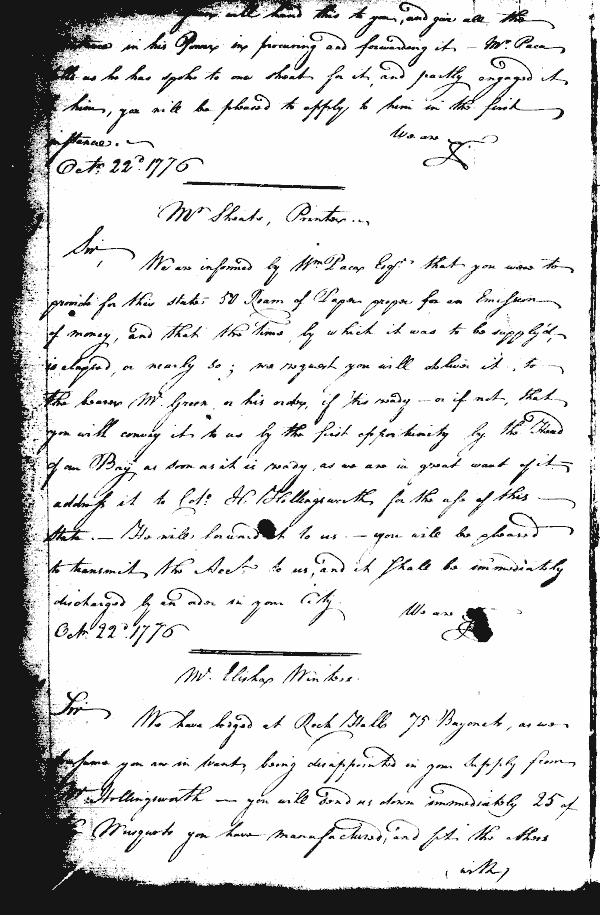 will hand this to you, and give all the
in his Power in procuring and forwarding it — Mr. Paca
tells us he has spoke to one Sheats for it, and partly engaged it
him, you will be pleased to apply to him in the first
instance. —
We are &
Octr. 22d. 1776
Mr. Sheats, Printer. —
Sir,
We are informed by Wm. Paca Esqr. that you were to
provide for this state 50 Ream of Paper proper for an Emission
of money, and that the time, by which it was to be supply'd,
is elapsed, or nearly so; we request you will deliver it, to
the bearer Mr. Green or his order, if 'tis ready — or if not, that
you will convey it to us by the first opportunity by the Head
of our Bay as soon as it is ready, as we are in great want of it
address it to Colo. H. Hollingsworth for the use of this
State. — He will forward it to us. — you will be pleased
to transmit the Acct. to us, and it shall be immediately
discharged by an order in your City.
We are &
Octr. 22d. 1776
Mr. Elisha Winters.
Sir
We have lodged at Rock Hall 75 Bayonets, as we
presume you are in want, being disappointed in your supply from
Mr. Hollingsworth — you will send us down immediately 25 of
Musquets you have manufactured, and fit the others
with